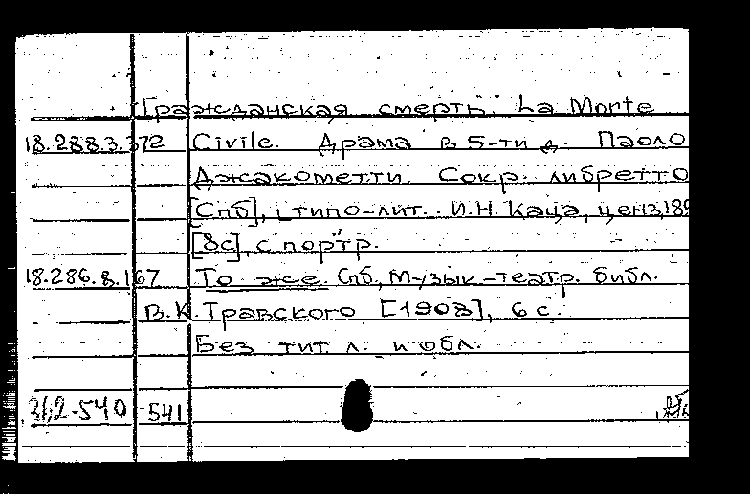 Гражданская смерть. La Morte
18.288.3.372 Civile. Драма в 5-ти д. Паоло
Джакометти. Сокр. либретто
[Спб], типо-лит. И.Н. Каца, ценз, 189
[8с], с портр.
18.286.8.167 То же Спб, Музык-театр. библ.
В.К. Травского [1908], 6 с.
Без тит. л. и обл.
312-540 541